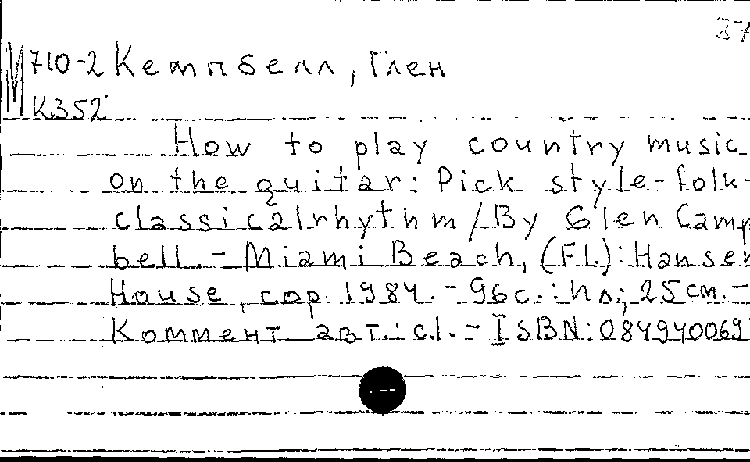 37
М710-2 Кемпбелл, Глен
К352
How to play country music
on the guitar: Pick style-folk-
classicalrhythm/By Glen Camp
bell.-Miami Beach,(Fl.): Hansen
House, cop. 1984.-96с.: ил; 25см.-
Коммент авт.: с1.-ISBN: 084940069